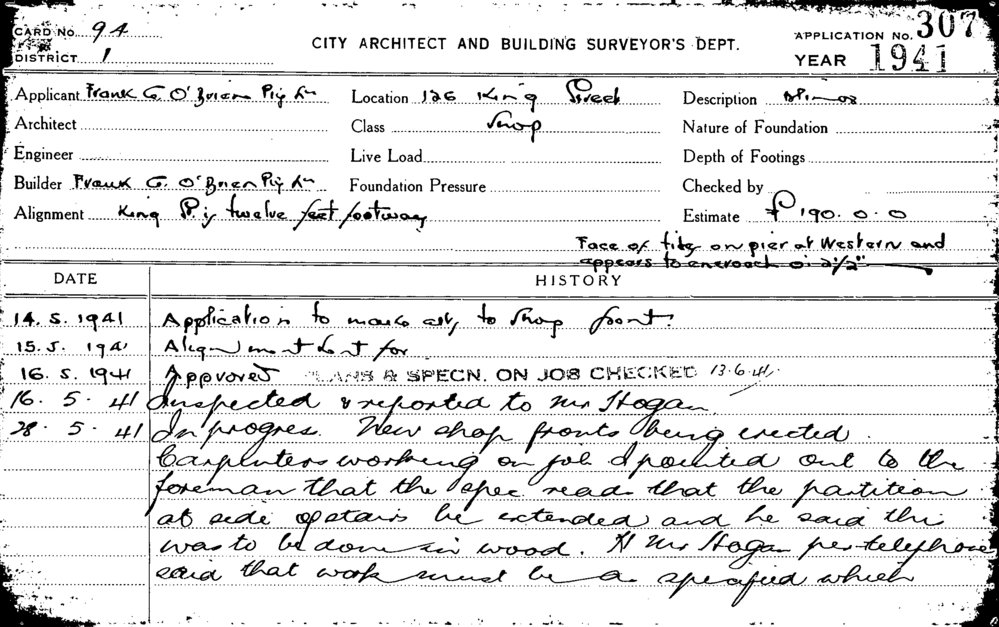 CARD No. 94
DISTRICT 1
CITY ARCHITECT AND BUILDING SURVEYOR'S DEPT.
APPLICATION No. 307
YEAR 1941
Applicant Frank G. O'Brien Pty Ltd Location 126 King Street Description
Architect Class Shop Nature of Foundation
Engineer Live Load Depth of Footings
Builder Frank G. O'Brien Pty Ltd Foundation Pressure Checked by
Alignment King St. is twelve feet footway Estimate £190.0.0
Face of tiles on pier at Western end
appears to encroach 2½"
DATE HISTORY
14.5.1941 Application to make alts to Shop front.
15.5.1941 Alignment sent for
16.5.1941 Approved PLANS & SPECN. ON JOB CHECKED 13.6.41.
16.5.41 Inspected & reported to Mr Hogan.
28.5.41 In progres. New shop fronts being erected
Carpenters working on job I pointed out to the
foreman that the spec reads that the partition
at side of stairs be extended and he said this
was to be done in wood. Mr Hogan per telephone
said that work must be as specified which